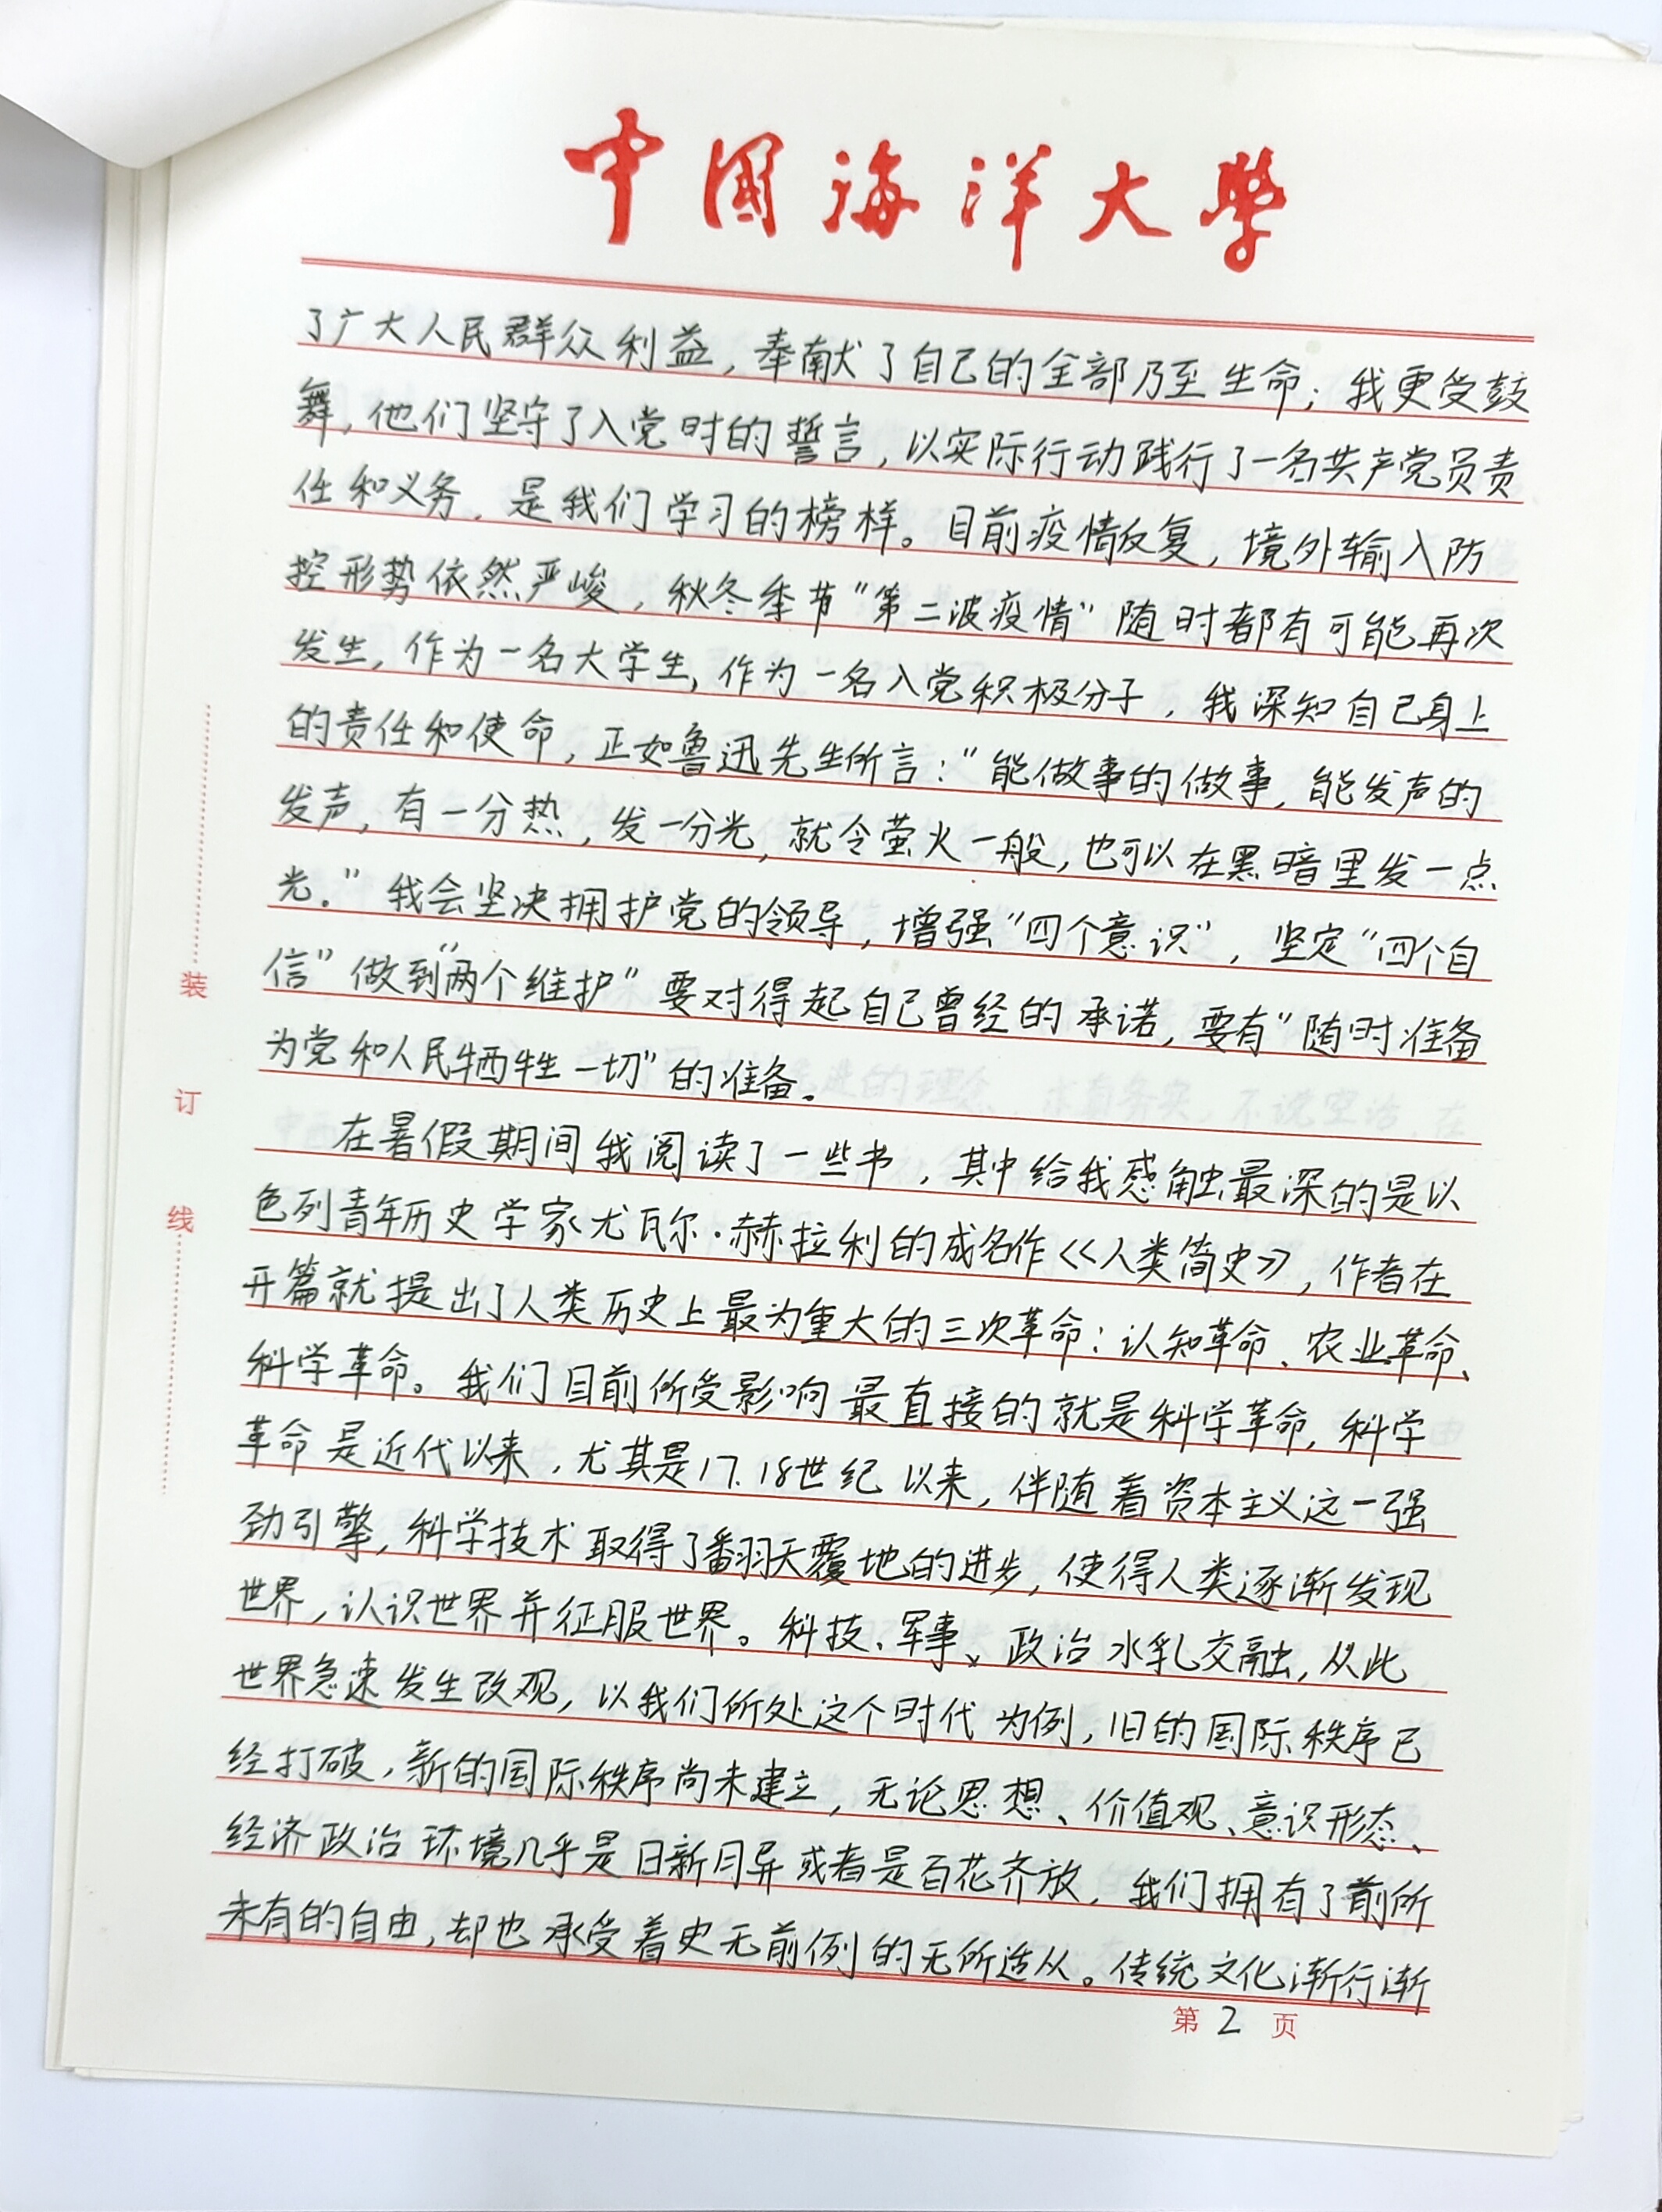 中国海洋大学
了广大人民群众利益，奉献了自己的全部乃至生命；我更受鼓
舞，他们坚守了入党时的誓言，以实际行动践行了一名共产党员责
任和义务，是我们学习的榜样。目前疫情反复，境外输入防
控形势依然严峻，秋冬季节“第二波疫情”随时都有可能再次
发生，作为一名大学生，作为一名入党积极分子，我深知自己身上
的责任和使命，正如鲁迅先生所言：“能做事的做事，能发声的
发声，有一分热，发一分光，就令萤火一般，也可以在黑暗里发一点
光．”我会坚决拥护党的领导，增强“四个意识”，坚定“四个自
信”做到“两个维护”要对得起自己曾经的承诺，要有“随时准备
为党和人民牺牲一切”的准备。
在暑假期间我阅读了一些书，其中给我感触最深的是以
色列青年历史学家尤瓦尔·赫拉利的成名作《人类简史》，作者在
开篇就提出了人类历史上最为重大的三次革命：认知革命、农业革命、
科学革命。我们目前所受影响最直接的就是科学革命，科学
革命是近代以来，尤其是17.18世纪以来，伴随着资本主义这一强
劲引擎，科学技术取得了翻天覆地的进步，使得人类逐渐发现
世界，认识世界并征服世界。科技、军事、政治水乳交融，从此
世界急速发生改观，以我们所处这个时代为例，旧的国际秩序已
经打破，新的国际秩序尚未建立，无论思想、价值观、意识形态、
经济政治环境几乎是日新月异或者是百花齐放，我们拥有了前所
未有的自由，却也承受着史无前例的无所适从。传统文化渐行渐
第2页
装
订
线